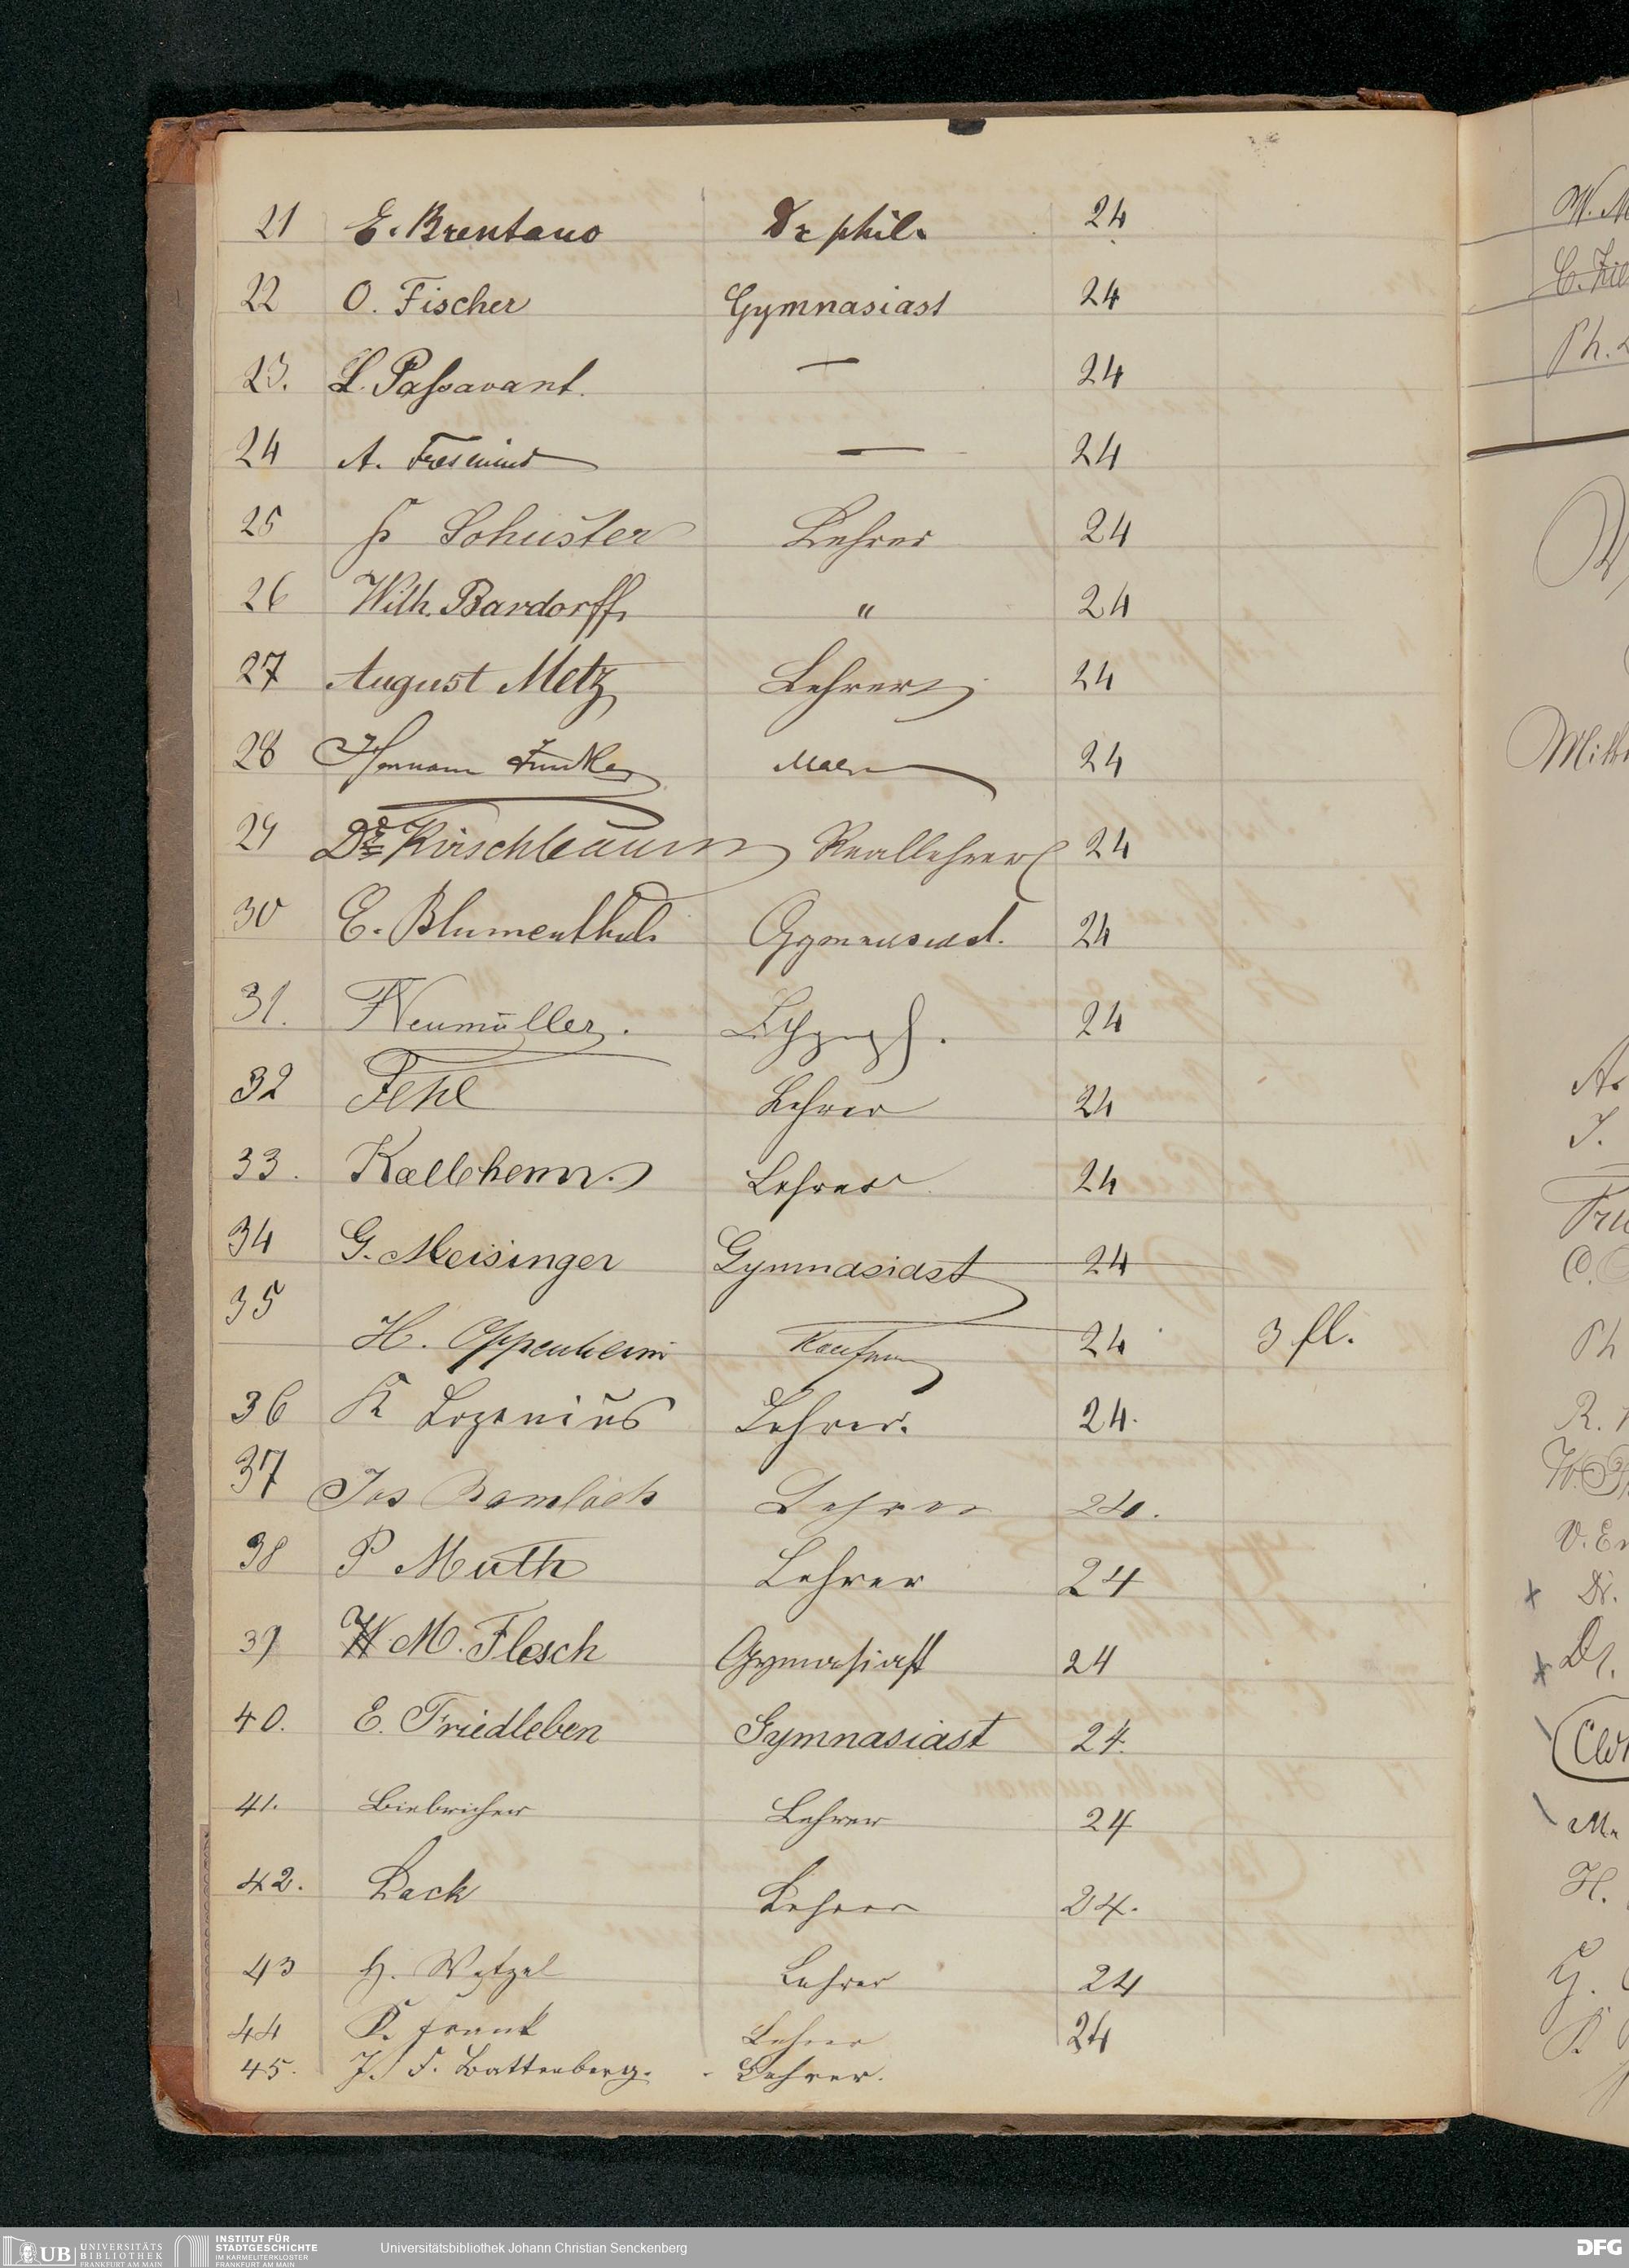 21 E. Brentano Dr phil. 24
22 O. Fischer Gymnasiast 24
23. L. Passavant. — 24
24 A. Fresenius — 24
25 Schuster Lehrer 24
26 Wilh. Bardorff " 24
27 August Metz Lehrer 24
28 Hermann Junker Maler 24
29 Dr Kirschbaum Reallehrer 24
30 E. Blumenthal. Gymnasiast. 24
31. Neumüller. 24
32 Fehl Lehrer 24
33. Lehrer 24
34 G. Meisinger Gymnasiast 24
35 H. Oppenheim Kaufmann 24 3 fl.
36 K Lehrer. 24.
37 Jos Lehrer 24.
38 P Muth Lehrer 24
39 M. Flesch Gymnasiast 24
40. E. Friedleben Gymnasiast 24.
41. Biebricher Lehrer 24
42. Back Lehrer 24.
43 H. Wetzel Lehrer 24
44 K. Frank Lehrer 24
45. J. F. Battenberg. Lehrer.
W. M
Ph.
Mitt
A.
J.
Ph
R.
Dr.
Dr.
H.
UB UNIVERSITÄTS
BIBLIOTHEK
FRANKFURT AM MAIN
INSTITUT FÜR
STADTGESCHICHTE
IM KARMELITERKLOSTER
FRANKFURT AM MAIN
Universitätsbibliothek Johann Christian Senckenberg
DFG